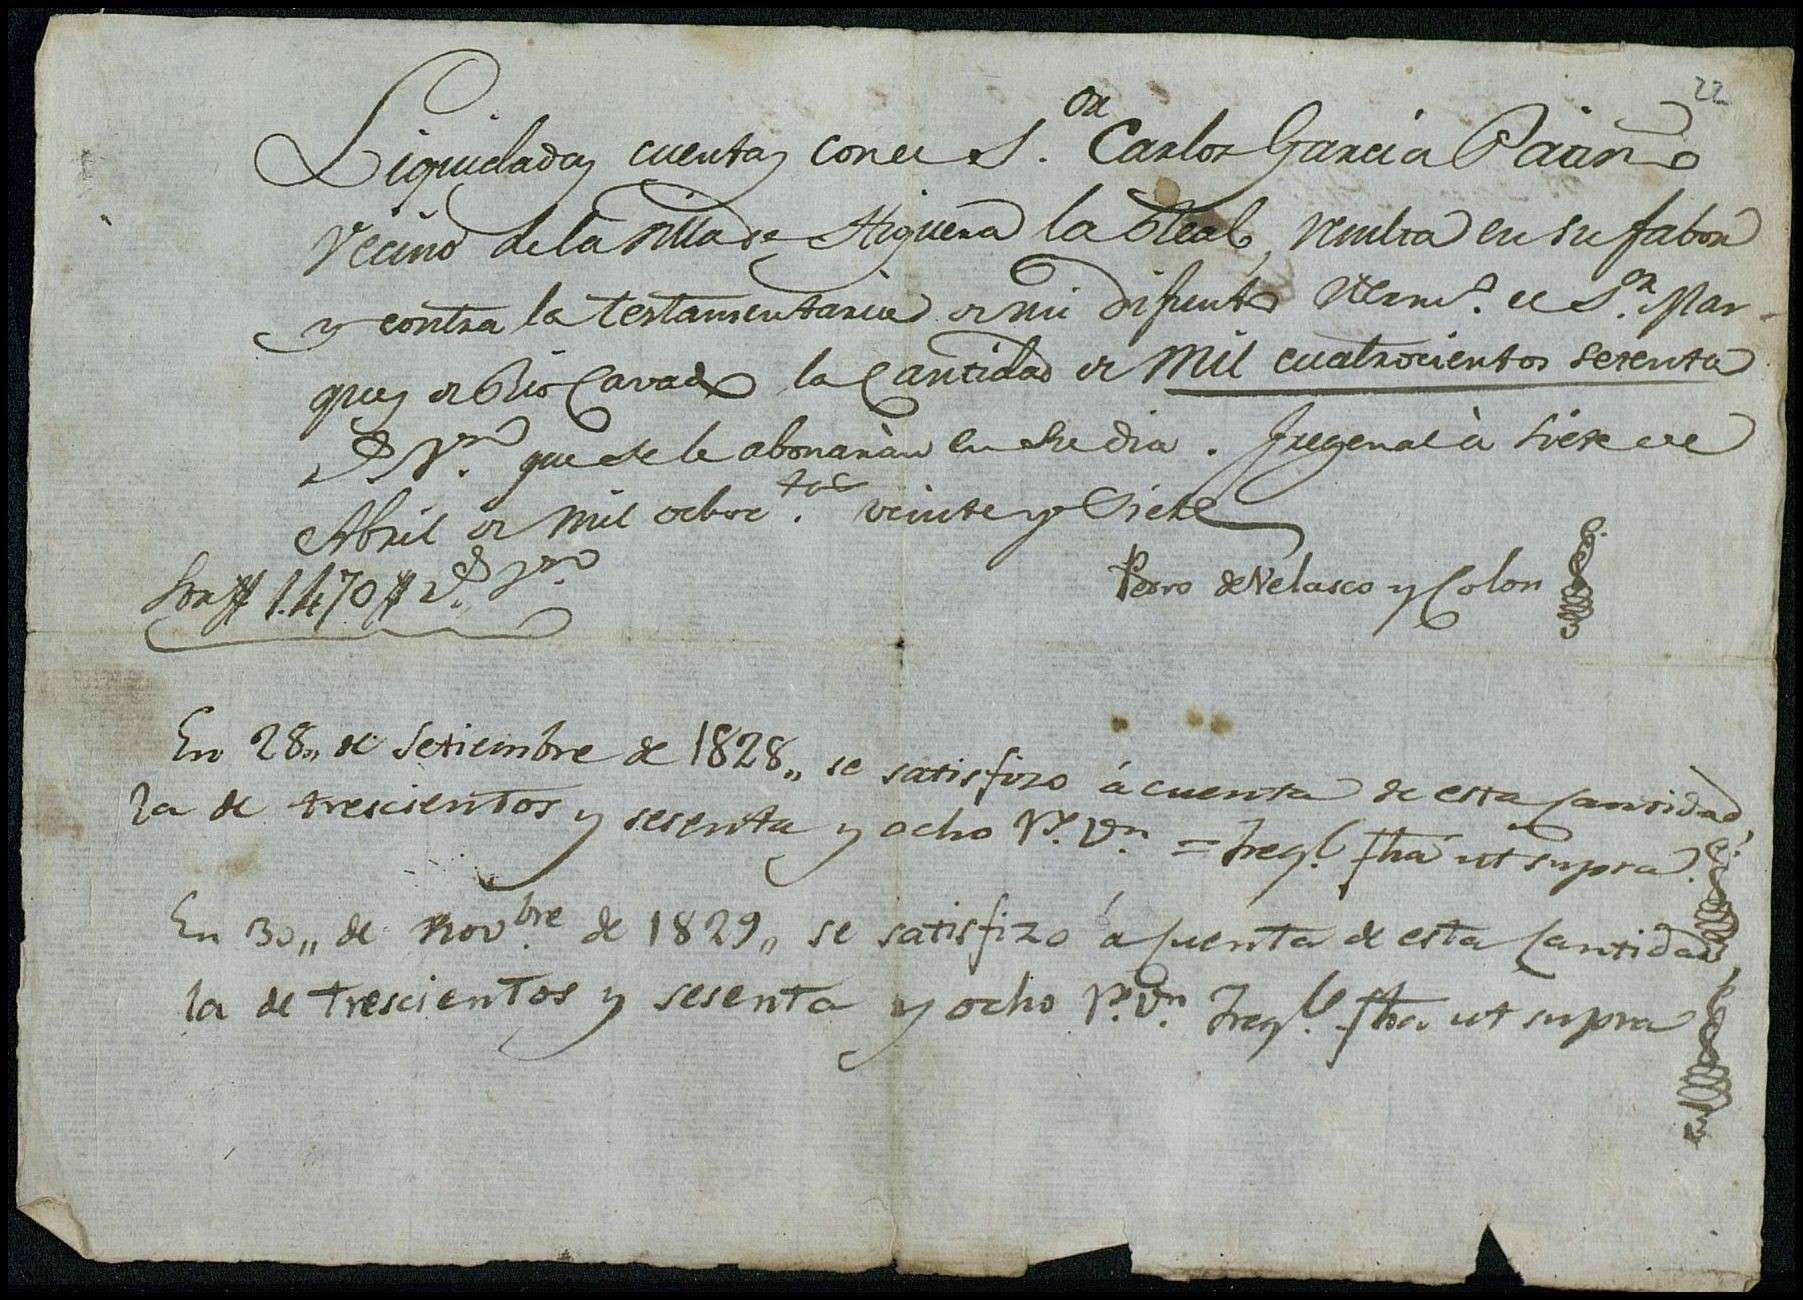 22
Liquidadas cuentas con el S.or Carlos Garcia Patiño
vecino de la villa de Higuera la Real, resulta en su fabor
y contra la testamentaria de mi difunto Herm.o el S.or Mar-
ques de Rio Cavado la cantidad de mil cuatrocientos setenta
r.s v.on que se le abonarán en este dia. Fregenal à siete de
Abril de mil ochoc.tos veinte y siete
Son # 1.470 # r.s v.on
Pedro de Velasco y Colon
En 28,, de setiembre de 1828,, se satisfizo á cuenta de esta cantidad,
la de trescientos y sesenta y ocho r.s v.n = Freg.l fha ut supra.
En 30,, de Nov.bre de 1829,, se satisfizo á cuenta de esta cantidad
la de trescientos y sesenta y ocho r.s v.n Freg.l fha ut supra